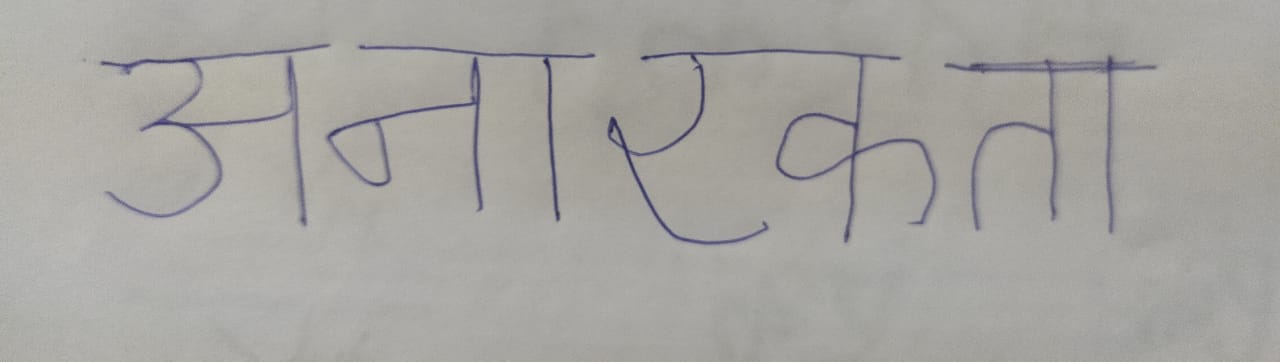 अनारकता